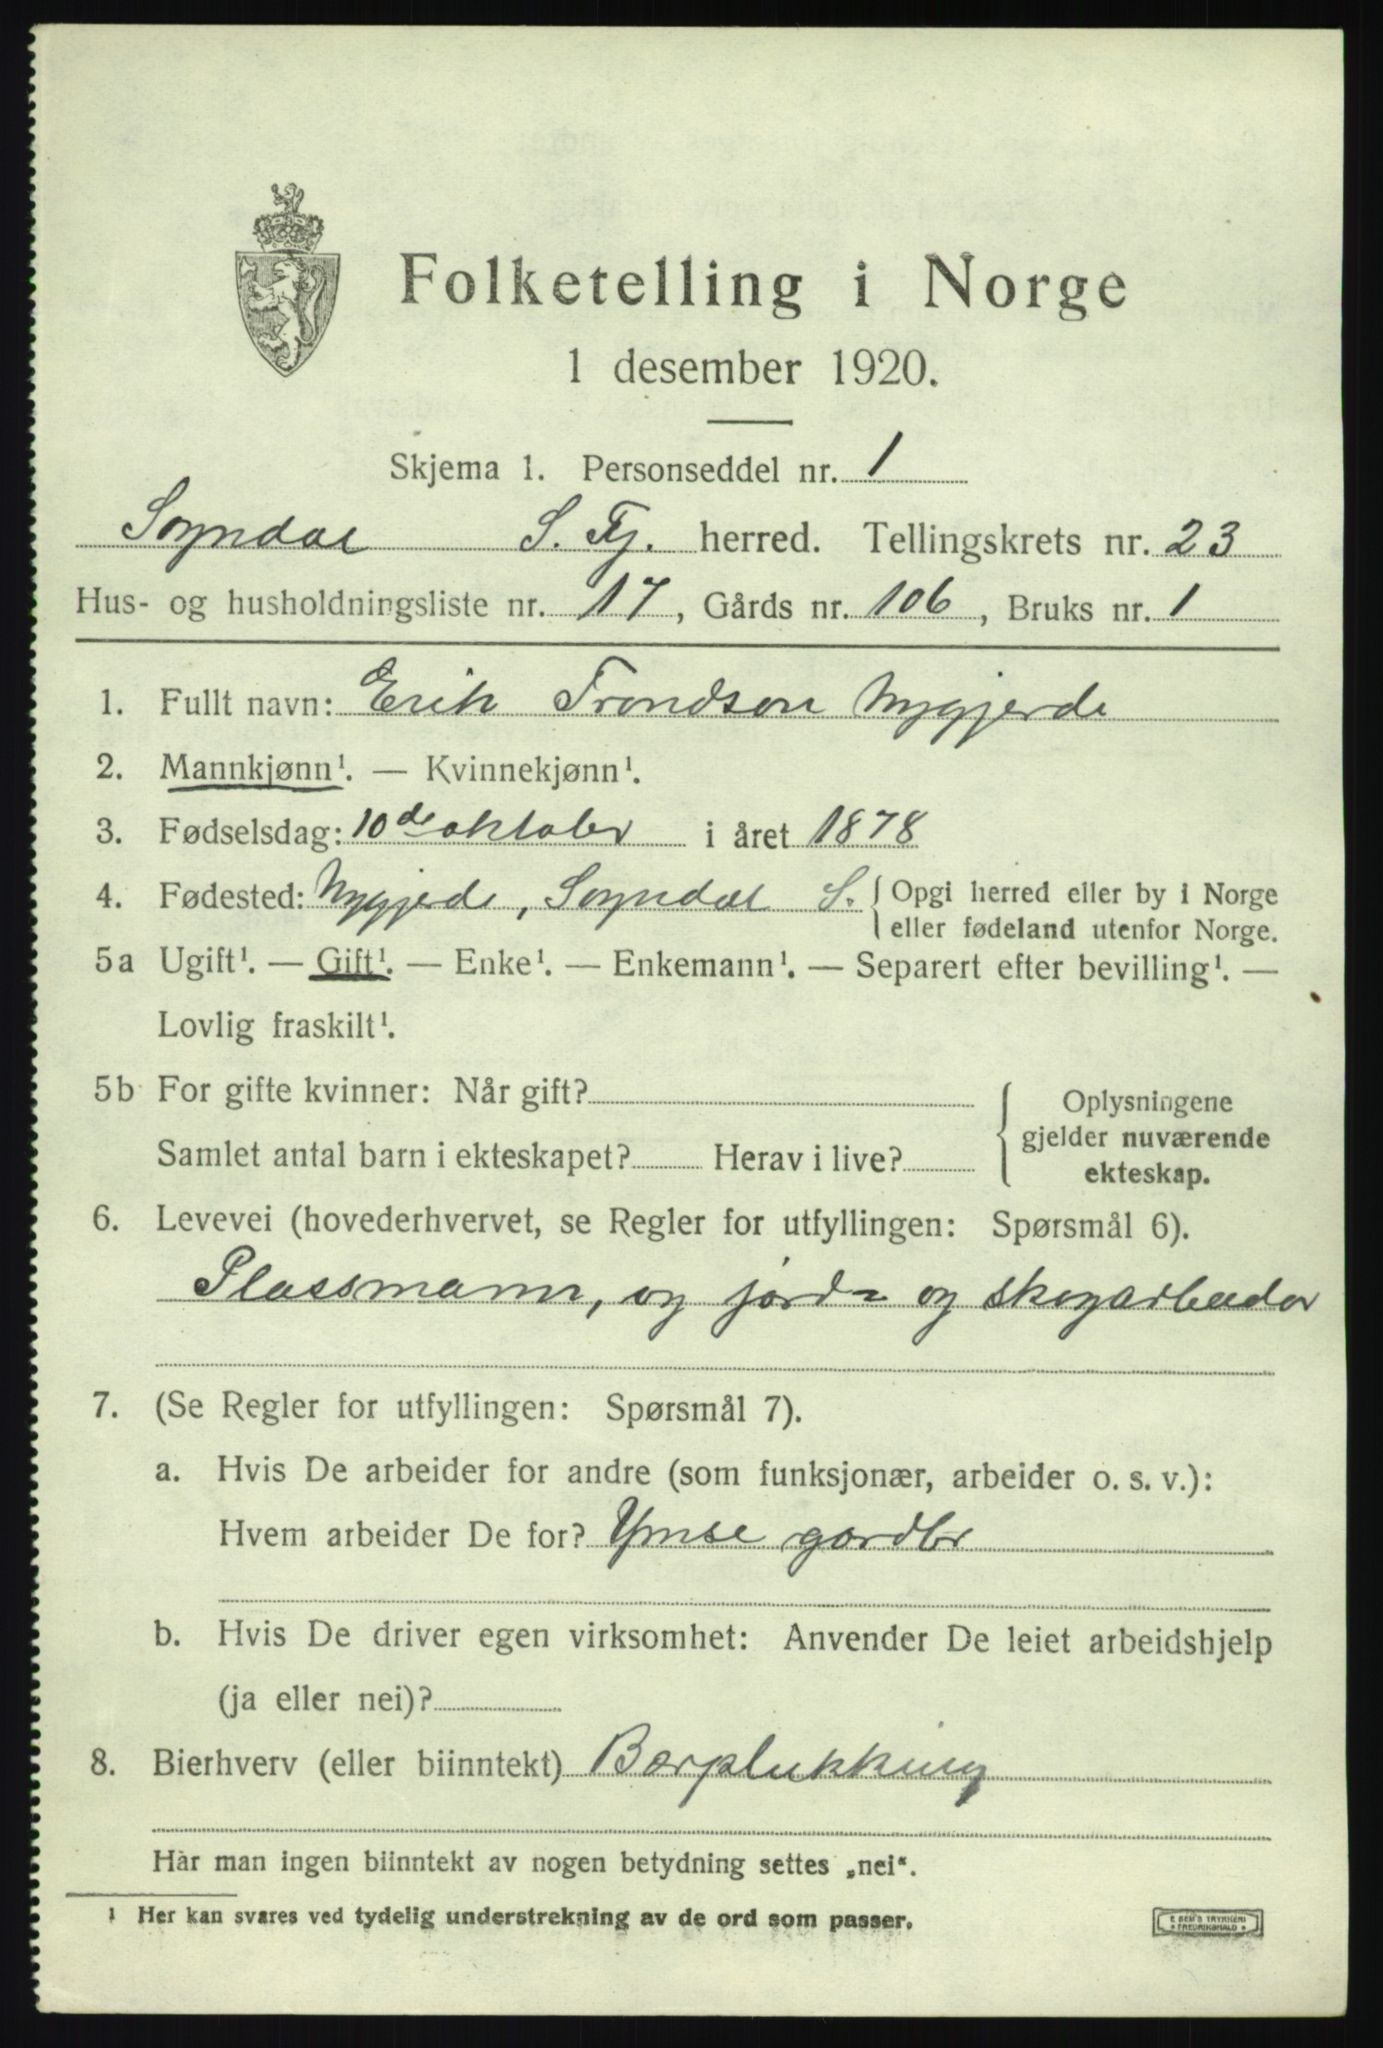 Folketelling i Norge
1 desember 1920.
Skjema 1. Personseddel nr. 1
Sogndal S. Fj. herred. Tellingskrets nr. 23
Hus- og husholdningsliste nr. 17, Gårds nr. 106, Bruks nr. 1
1. Fullt navn: Erik Trondson Nygjerde
2. Mannkjønn¹. — Kvinnekjønn¹.
3. Fødselsdag: 10de oktober i året 1878
4. Fødested: Nygjerde, Sogndal S. { Opgi herred eller by i Norge
eller fødeland utenfor Norge.
5a Ugift¹. — Gift¹. — Enke¹. — Enkemann¹. — Separert efter bevilling¹. —
Lovlig fraskilt¹.
5b For gifte kvinner: Når gift?
Samlet antal barn i ekteskapet? Herav i live?
Oplysningene
gjelder nuværende
ekteskap.
6. Levevei (hovederhvervet, se Regler for utfyllingen: Spørsmål 6).
Plassmann, og jord- og skogarbeider
7. (Se Regler for utfyllingen: Spørsmål 7).
a. Hvis De arbeider for andre (som funksjonær, arbeider o. s. v.):
Hvem arbeider De for? Ymse gardbr
b. Hvis De driver egen virksomhet: Anvender De leiet arbeidshjelp
(ja eller nei)?
8. Bierhverv (eller biinntekt) Bærplukking
Har man ingen biinntekt av nogen betydning settes „nei“.
1 Her kan svares ved tydelig understrekning av de ord som passer.
E SEM'S TRYKKERI
FREDRIKSHALD